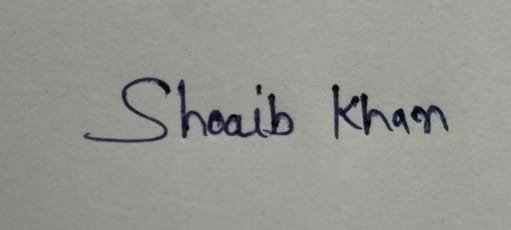 Shoaib Khan